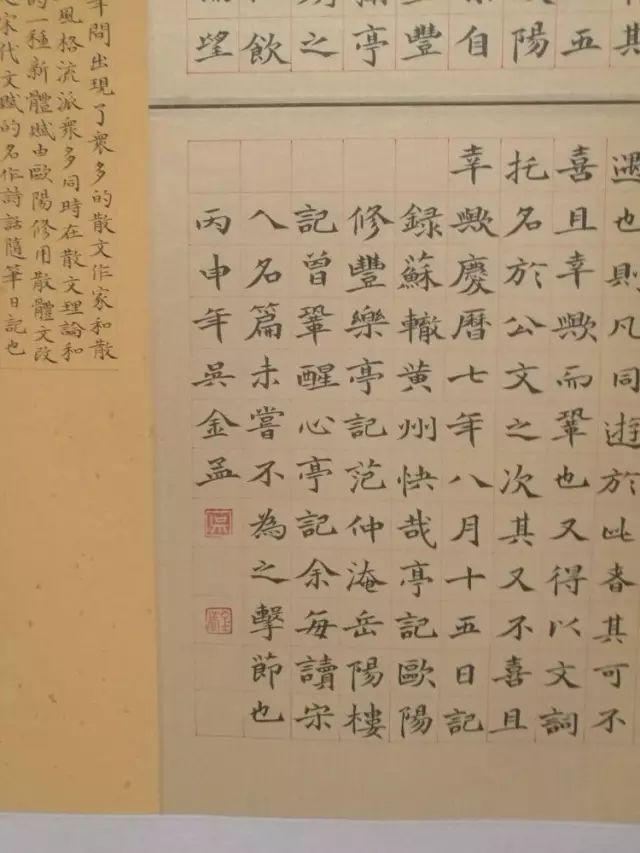 其
五
陽
自
豐
亭
之
飲
望
遇也則凡同遊於此者其可不
喜且幸歟而鞏也又得以文詞
托名於公文之次其又不喜且
幸歟慶曆七年八月十五日記
録蘇轍黄州快哉亭記歐陽
修豐樂亭記范仲淹岳陽樓
記曾鞏醒心亭記余每讀宋
人名篇未嘗不為之擊節也
丙申年吳金孟
年間出現了衆多的散文作家和散
風格流派衆多同時在散文理論和
的一種新體賦由歐陽修用散體文改
宋代文賦的名作詩話隨筆日記也